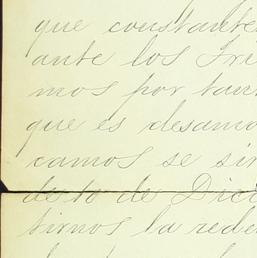 que constante
ante los Tri
mos por tan
que es desamo
camos se sir
de to de Dici
tirnos la rede